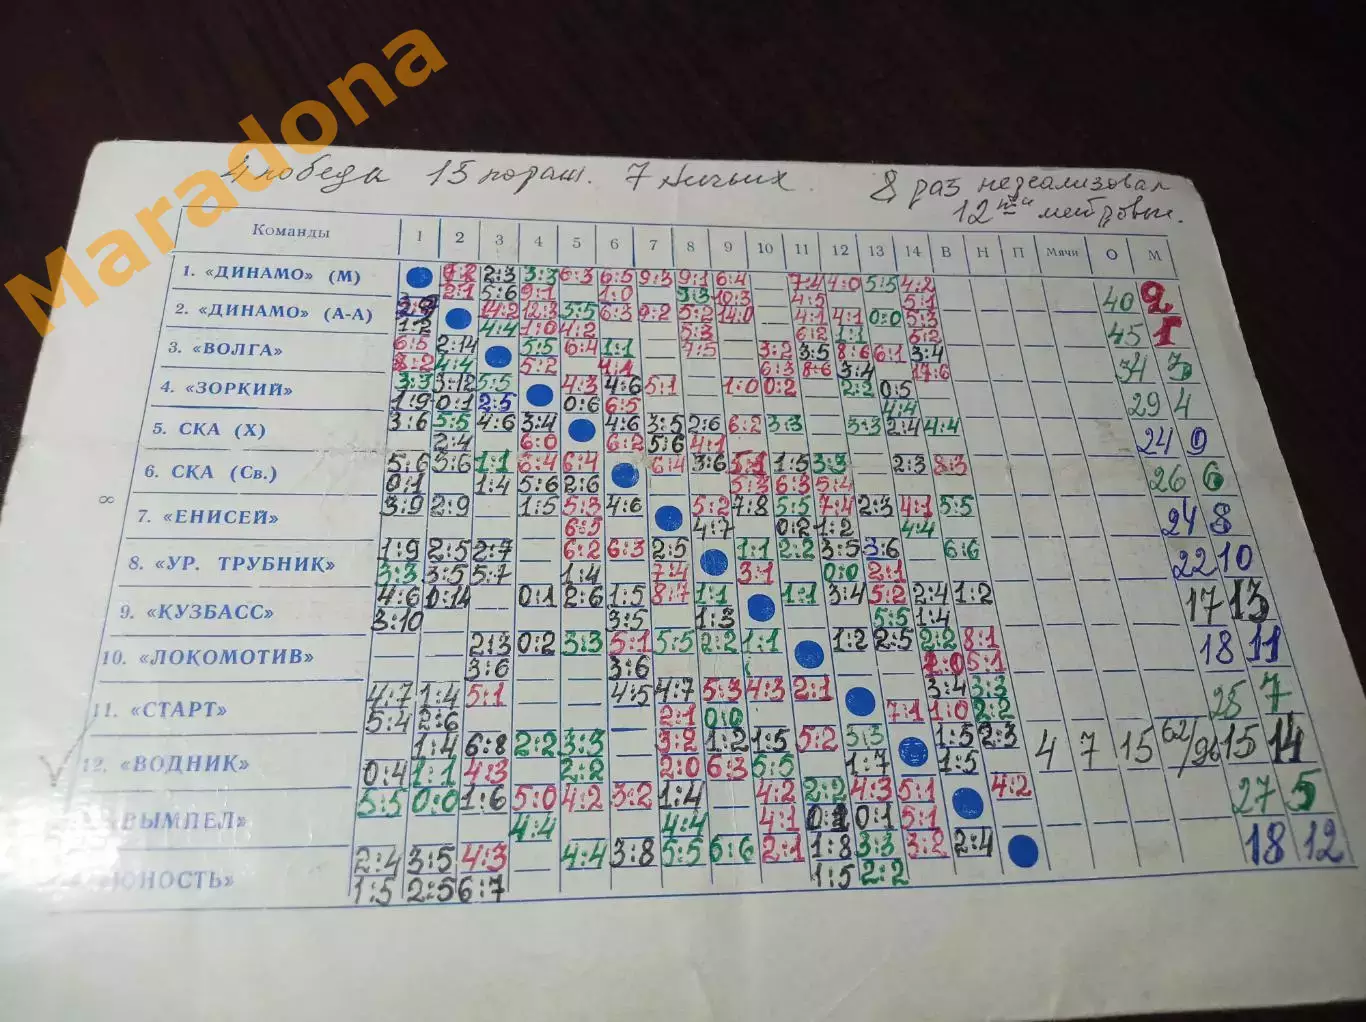 Maradona
4 победа 15 пораж. 7 ничьих. 8 раз нереализовал
12ти метровые.
Команды 1 2 3 4 5 6 7 8 9 10 11 12 13 14 В Н П Мячи О М
1. «ДИНАМО» (М) 9:2 2:3 3:3 6:3 6:5 9:3 9:1 6:4 7:4 4:0 5:5 4:2
2:1 5:6 9:1 1:0 3:3 10:3 4:5 5:1 40 2
2. «ДИНАМО» (А-А) 14:2 12:3 5:5 6:3 9:2 5:2 14:0 4:1 4:1 0:0 5:3
1:2 4:4 1:0 4:2 5:3 6:2 1:1 5:2 45 1
3. «ВОЛГА» 2:14 5:5 6:4 1:1 7:5 3:2 3:5 8:6 6:1 3:4
4:4 5:2 4:1 6:3 8:6 3:4 17:6 34 3
4. «ЗОРКИЙ» 3:3 3:12 5:5 4:3 4:6 5:1 1:0 0:2 2:2 0:5
1:9 0:1 2:5 0:6 6:5 4:4 29 4
5. СКА (Х) 3:6 5:5 4:6 3:4 4:6 3:5 2:6 6:2 3:3 3:3 2:4 4:4
2:4 6:0 6:2 5:6 4:1 24 9
6. СКА (Св.) 5:6 3:6 1:1 6:4 6:4 6:4 3:6 5:1 1:5 3:3 2:3 8:3
0:1 1:4 5:6 2:6 5:3 6:3 5:4 26 6
∞
7. «ЕНИСЕЙ» 3:9 2:9 1:5 5:3 4:6 5:2 7:8 5:5 7:4 2:3 4:1 5:5
6:5 4:7 0:2 1:2 4:4 24 8
8. «УР. ТРУБНИК» 1:9 2:5 2:7 6:2 6:3 2:5 1:1 2:2 3:5 3:6 6:6
3:3 3:5 5:7 1:4 7:4 3:1 0:0 2:1 22 10
9. «КУЗБАСС» 4:6 0:14 0:1 2:6 1:5 8:7 1:1 1:1 3:4 5:2 2:4 1:2
3:10 3:5 1:3 5:5 1:4 17 13
10. «ЛОКОМОТИВ» 2:3 0:2 3:3 5:1 5:5 2:2 1:1 1:2 2:5 2:2 8:1
3:6 3:6 2:0 5:1 18 11
11. «СТАРТ» 4:7 1:4 5:1 4:5 4:7 5:3 4:3 2:1 3:4 3:3
5:4 2:6 2:1 0:0 7:1 1:0 2:2 25 7
12. «ВОДНИК» 1:4 6:8 2:2 3:3 3:2 1:2 1:5 5:2 3:3 1:5 2:3 4 7 15 62/96 15 14
0:4 1:1 4:3 2:2 2:0 6:3 5:5 1:7 1:5
ВЫМПЕЛ» 5:5 0:0 1:6 5:0 4:2 3:2 1:4 4:2 2:2 4:3 5:1 4:2
4:4 4:4 4:1 0:1 5:1 27 5
ЮНОСТЬ» 2:4 3:5 4:3 4:4 3:8 5:5 6:6 2:1 1:8 3:3 3:2 2:4
1:5 2:5 6:7 1:5 2:2 18 12